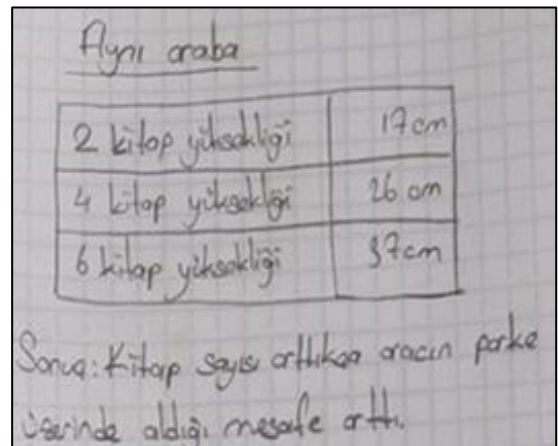 Aynı araba
2 kitap yüksekliği 17 cm
4 kitap yüksekliği 26 cm
6 kitap yüksekliği 37cm
Sonuç: Kitap sayısı arttıkça aracın parke
üzerinde aldığı mesafe arttı.